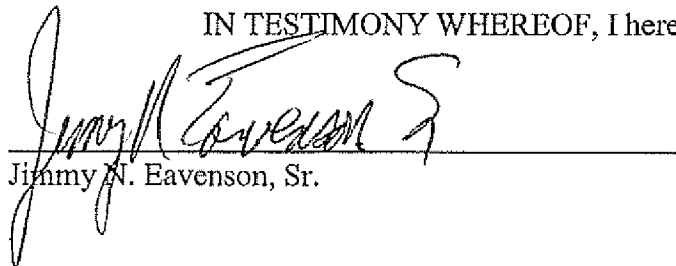 IN TESTIMONY WHEREOF, I here
Jimmy N Eavenson Sr
Jimmy N. Eavenson, Sr.